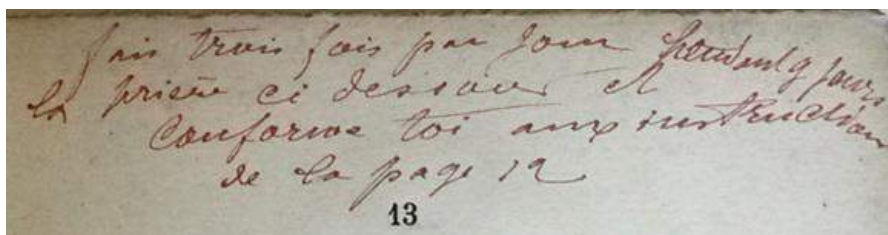 fais trois fois par jour pendant 9 jours
la prière ci dessous et
conforme toi aux instructions
de la page 12
13